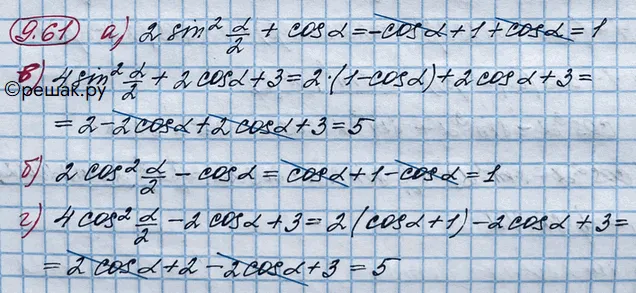 9.61 а) 2 sin² α/2 + cosα = -cosα + 1 + cosα = 1
в) 4 sin² α/2 + 2 cosα + 3 = 2·(1-cosα) + 2 cosα + 3 =
©решак.ру
= 2 - 2cosα + 2 cosα + 3 = 5
б) 2 cos² α/2 - cosα = cosα + 1 - cosα = 1
г) 4 cos² α/2 - 2 cosα + 3 = 2(cosα + 1) - 2cosα + 3 =
= 2 cosα + 2 - 2cosα + 3 = 5